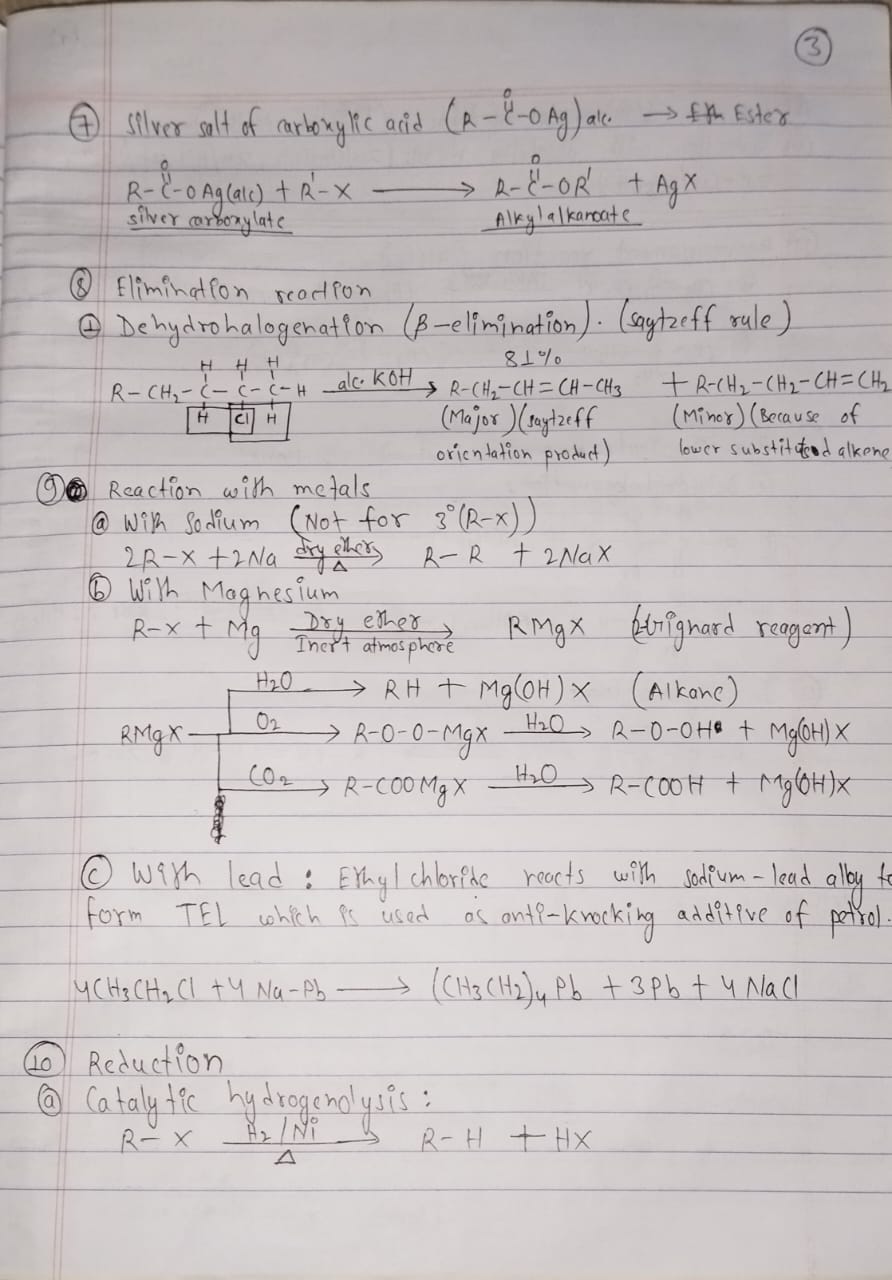 ③
⑦ Silver salt of carboxylic acid (R-C(=O)-OAg) alc. → Ester
R-C(=O)-OAg(alc) + R'-X → R-C(=O)-OR' + AgX
silver carboxylate Alkylalkanoate
⑧ Elimination reaction
① Dehydrohalogenation (β-elimination). (Saytzeff rule)
H H H 81%
R-CH2-C-C-C-H alc. KOH → R-CH2-CH=CH-CH3 + R-CH2-CH2-CH=CH2
H Cl H (Major) (Saytzeff (Minor) (Because of
orientation product) lower substituted alkene
⑨ Reaction with metals
ⓐ With Sodium (Not for 3°(R-X))
2R-X + 2Na dry ether Δ → R-R + 2NaX
ⓑ With Magnesium
R-X + Mg Dry ether → RMgX (Grignard reagent)
Inert atmosphere
H2O → RH + Mg(OH)X (Alkane)
RMgX O2 → R-O-O-MgX H2O → R-O-OH + Mg(OH)X
CO2 → R-COOMgX H2O → R-COOH + Mg(OH)X
ⓒ With lead : Ethyl chloride reacts with sodium-lead alloy to
form TEL which is used as anti-knocking additive of petrol.
4CH3CH2Cl + 4Na-Pb → (CH3CH2)4Pb + 3Pb + 4NaCl
⑩ Reduction
ⓐ Catalytic hydrogenolysis :
R-X H2/Ni → R-H + HX
Δ